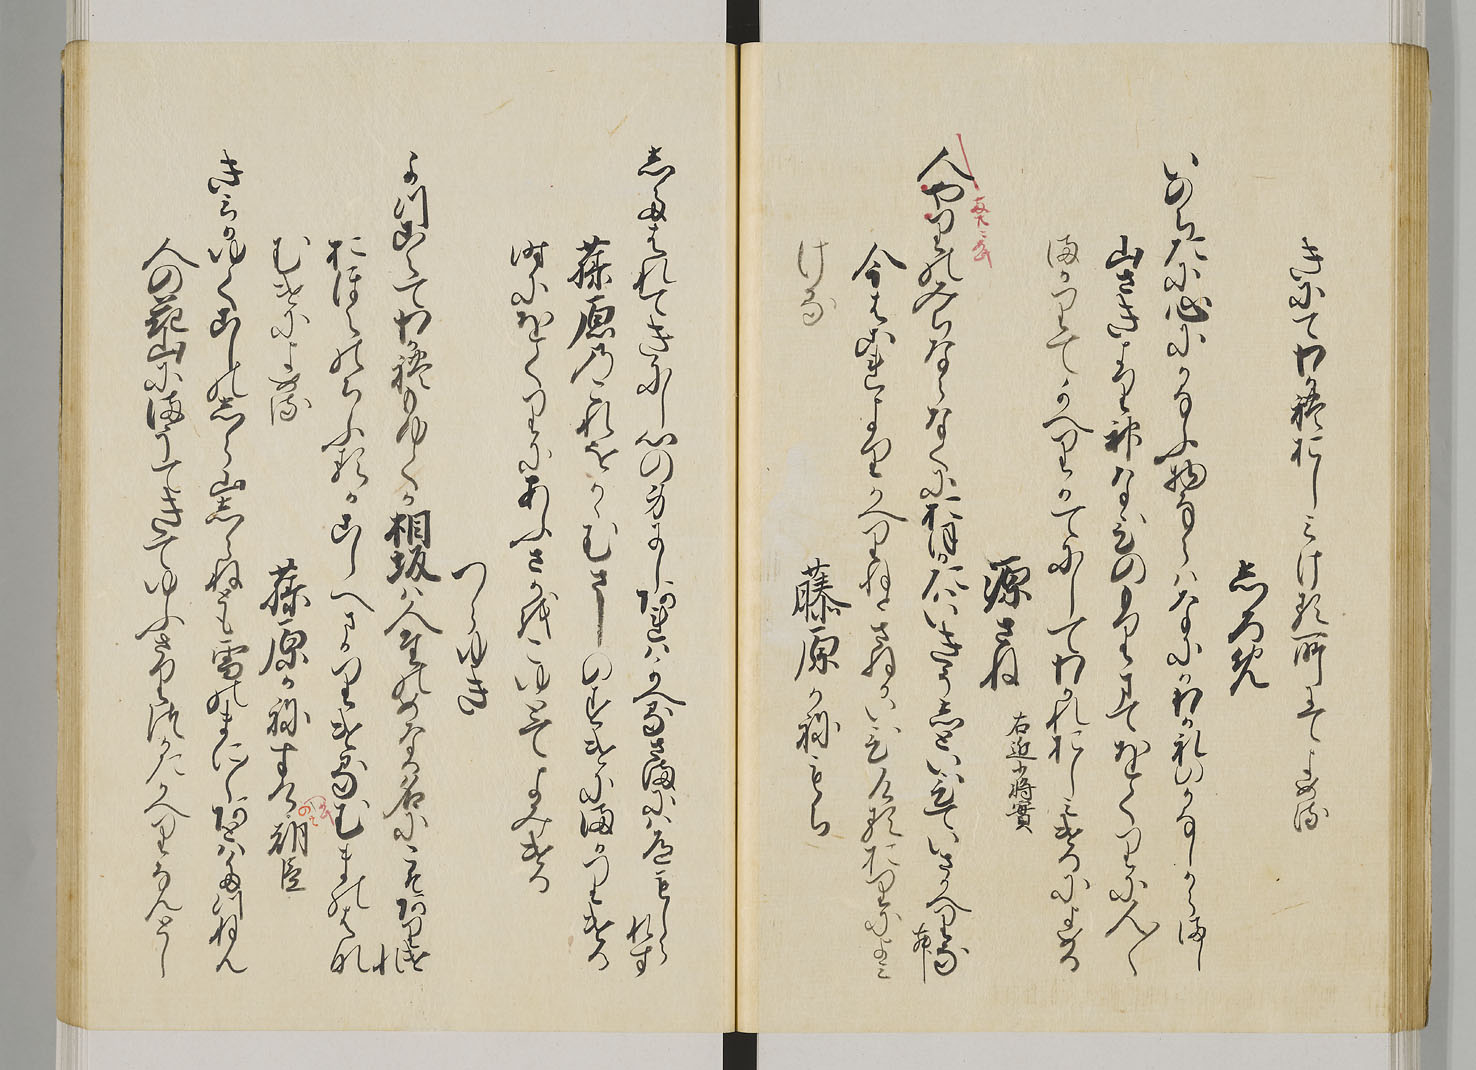 きにてわかれおしみける所にてよめる
しろめ
いのちたに心にかなふ物ならはなにかわかれのかなしからまし
山さきより神なひのもりまておくりに人〱
まかりてかへりかてにしてわかれおしみけるによめる
源さね 右近少将實
人やりのみちならなくにおほかたはいきうしといひていさかへりなむ
今はこれよりかへりねとさねかいひけるおりによみ
ける
藤原かねもち
したはれてきにし心の身にしあれはかへるさまには道もしられす
藤原のこれをかゝむさしのすけにまかりける
時にをくりにあふさかをこゆとてよみける
つらゆき
かつこえてわかれもゆくか相坂は人たのめなる名にこそありけれ
おほえのちふるかこしへまかりけるむまのはな
むけによめる
藤原かねすけ朝臣
きみかゆくこしのしら山しらねとも雪のまに〱あとはたつねん
人の花山にまうてきてゆふさりつかたかへりなんとし